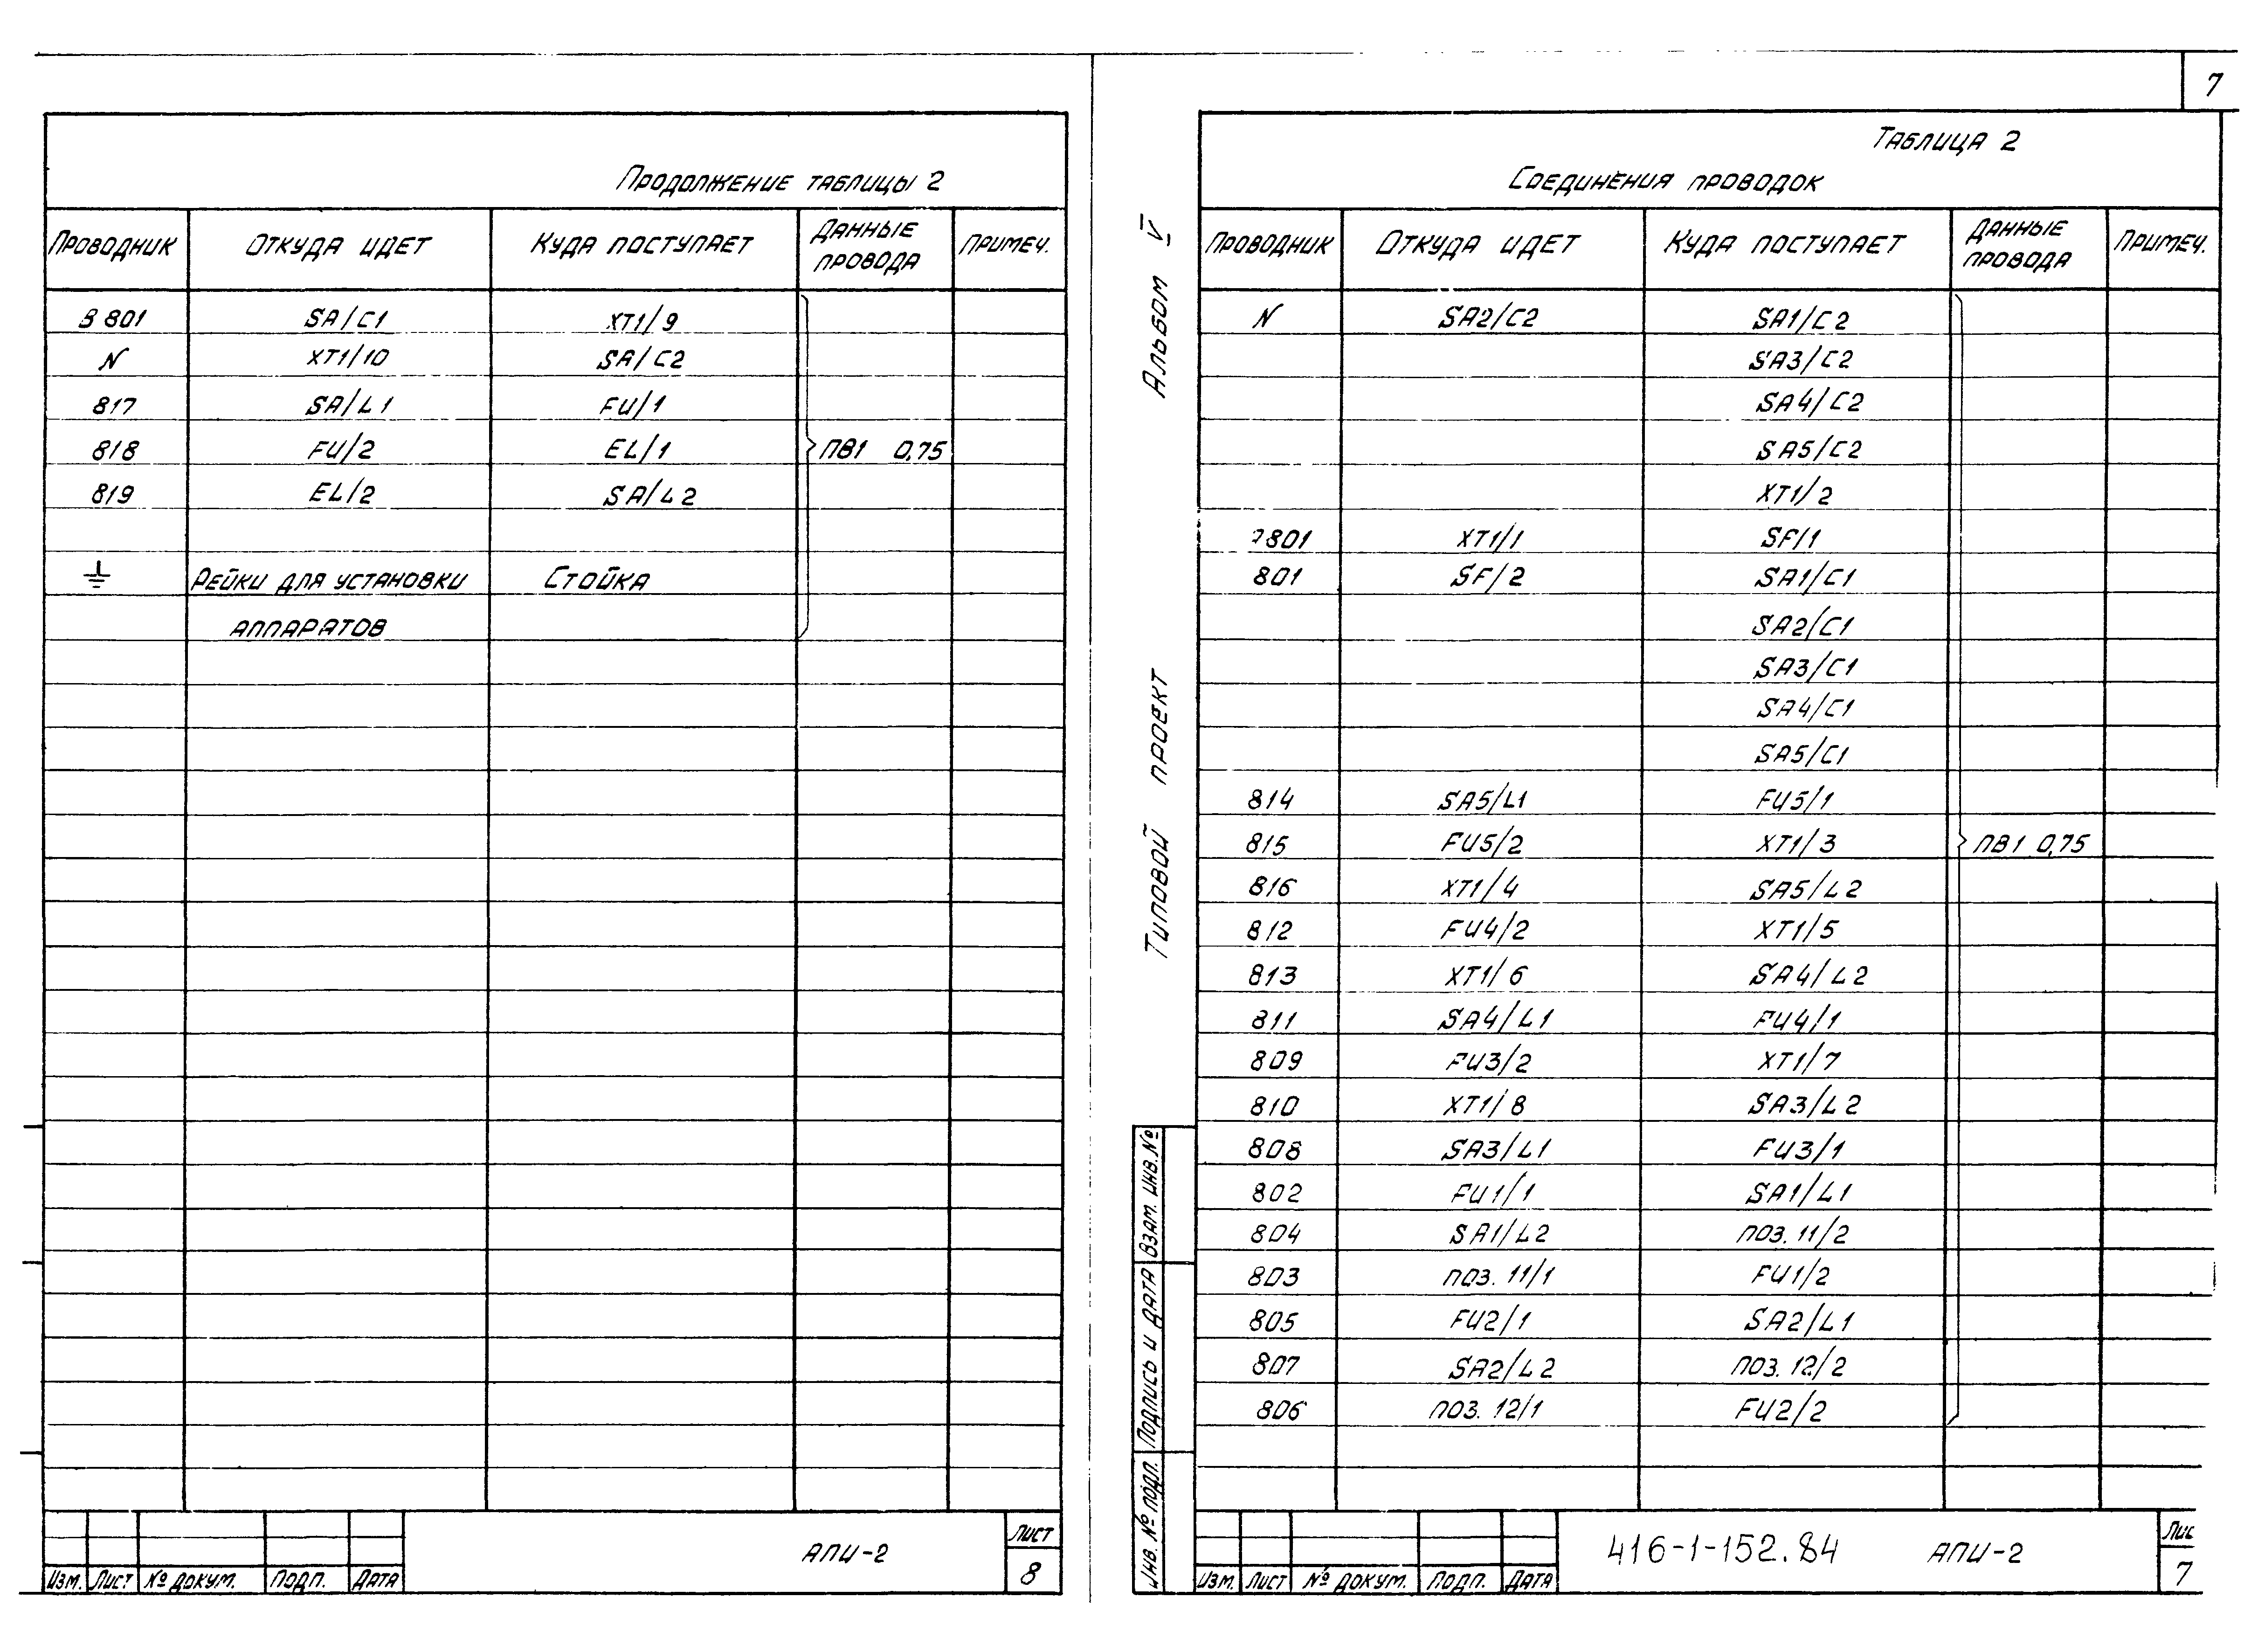 7
Продолжение таблицы 2
Проводник Откуда идет Куда поступает Данные провода Примеч.
В 801 SA/C1 XT1/9
N XT1/10 SA/C2
817 SA/L1 FU/1
818 FU/2 EL/1 ПВ1 0,75
819 EL/2 SA/L2
⏚ Рейки для установки Стойка
аппаратов
АПИ-2
Лист
8
Изм. Лист № докум. Подп. Дата
Альбом V
Типовой проект
Взам. инв. №
Подпись и дата
Инв. № подл.
Таблица 2
Соединения проводок
Проводник Откуда идет Куда поступает Данные провода Примеч.
N SA2/C2 SA1/C2
SA3/C2
SA4/C2
SA5/C2
XT1/2
801 XT1/1 SF/1
801 SF/2 SA1/C1
SA2/C1
SA3/C1
SA4/C1
SA5/C1
814 SA5/L1 FU5/1
815 FU5/2 XT1/3 ПВ1 0,75
816 XT1/4 SA5/L2
812 FU4/2 XT1/5
813 XT1/6 SA4/L2
811 SA4/L1 FU4/1
809 FU3/2 XT1/7
810 XT1/8 SA3/L2
808 SA3/L1 FU3/1
802 FU1/1 SA1/L1
804 SA1/L2 поз. 11/2
803 поз. 11/1 FU1/2
805 FU2/1 SA2/L1
807 SA2/L2 поз. 12/2
806 поз. 12/1 FU2/2
416-1-152.84 АПИ-2
Лис
7
Изм. Лист № докум. Подп. Дата